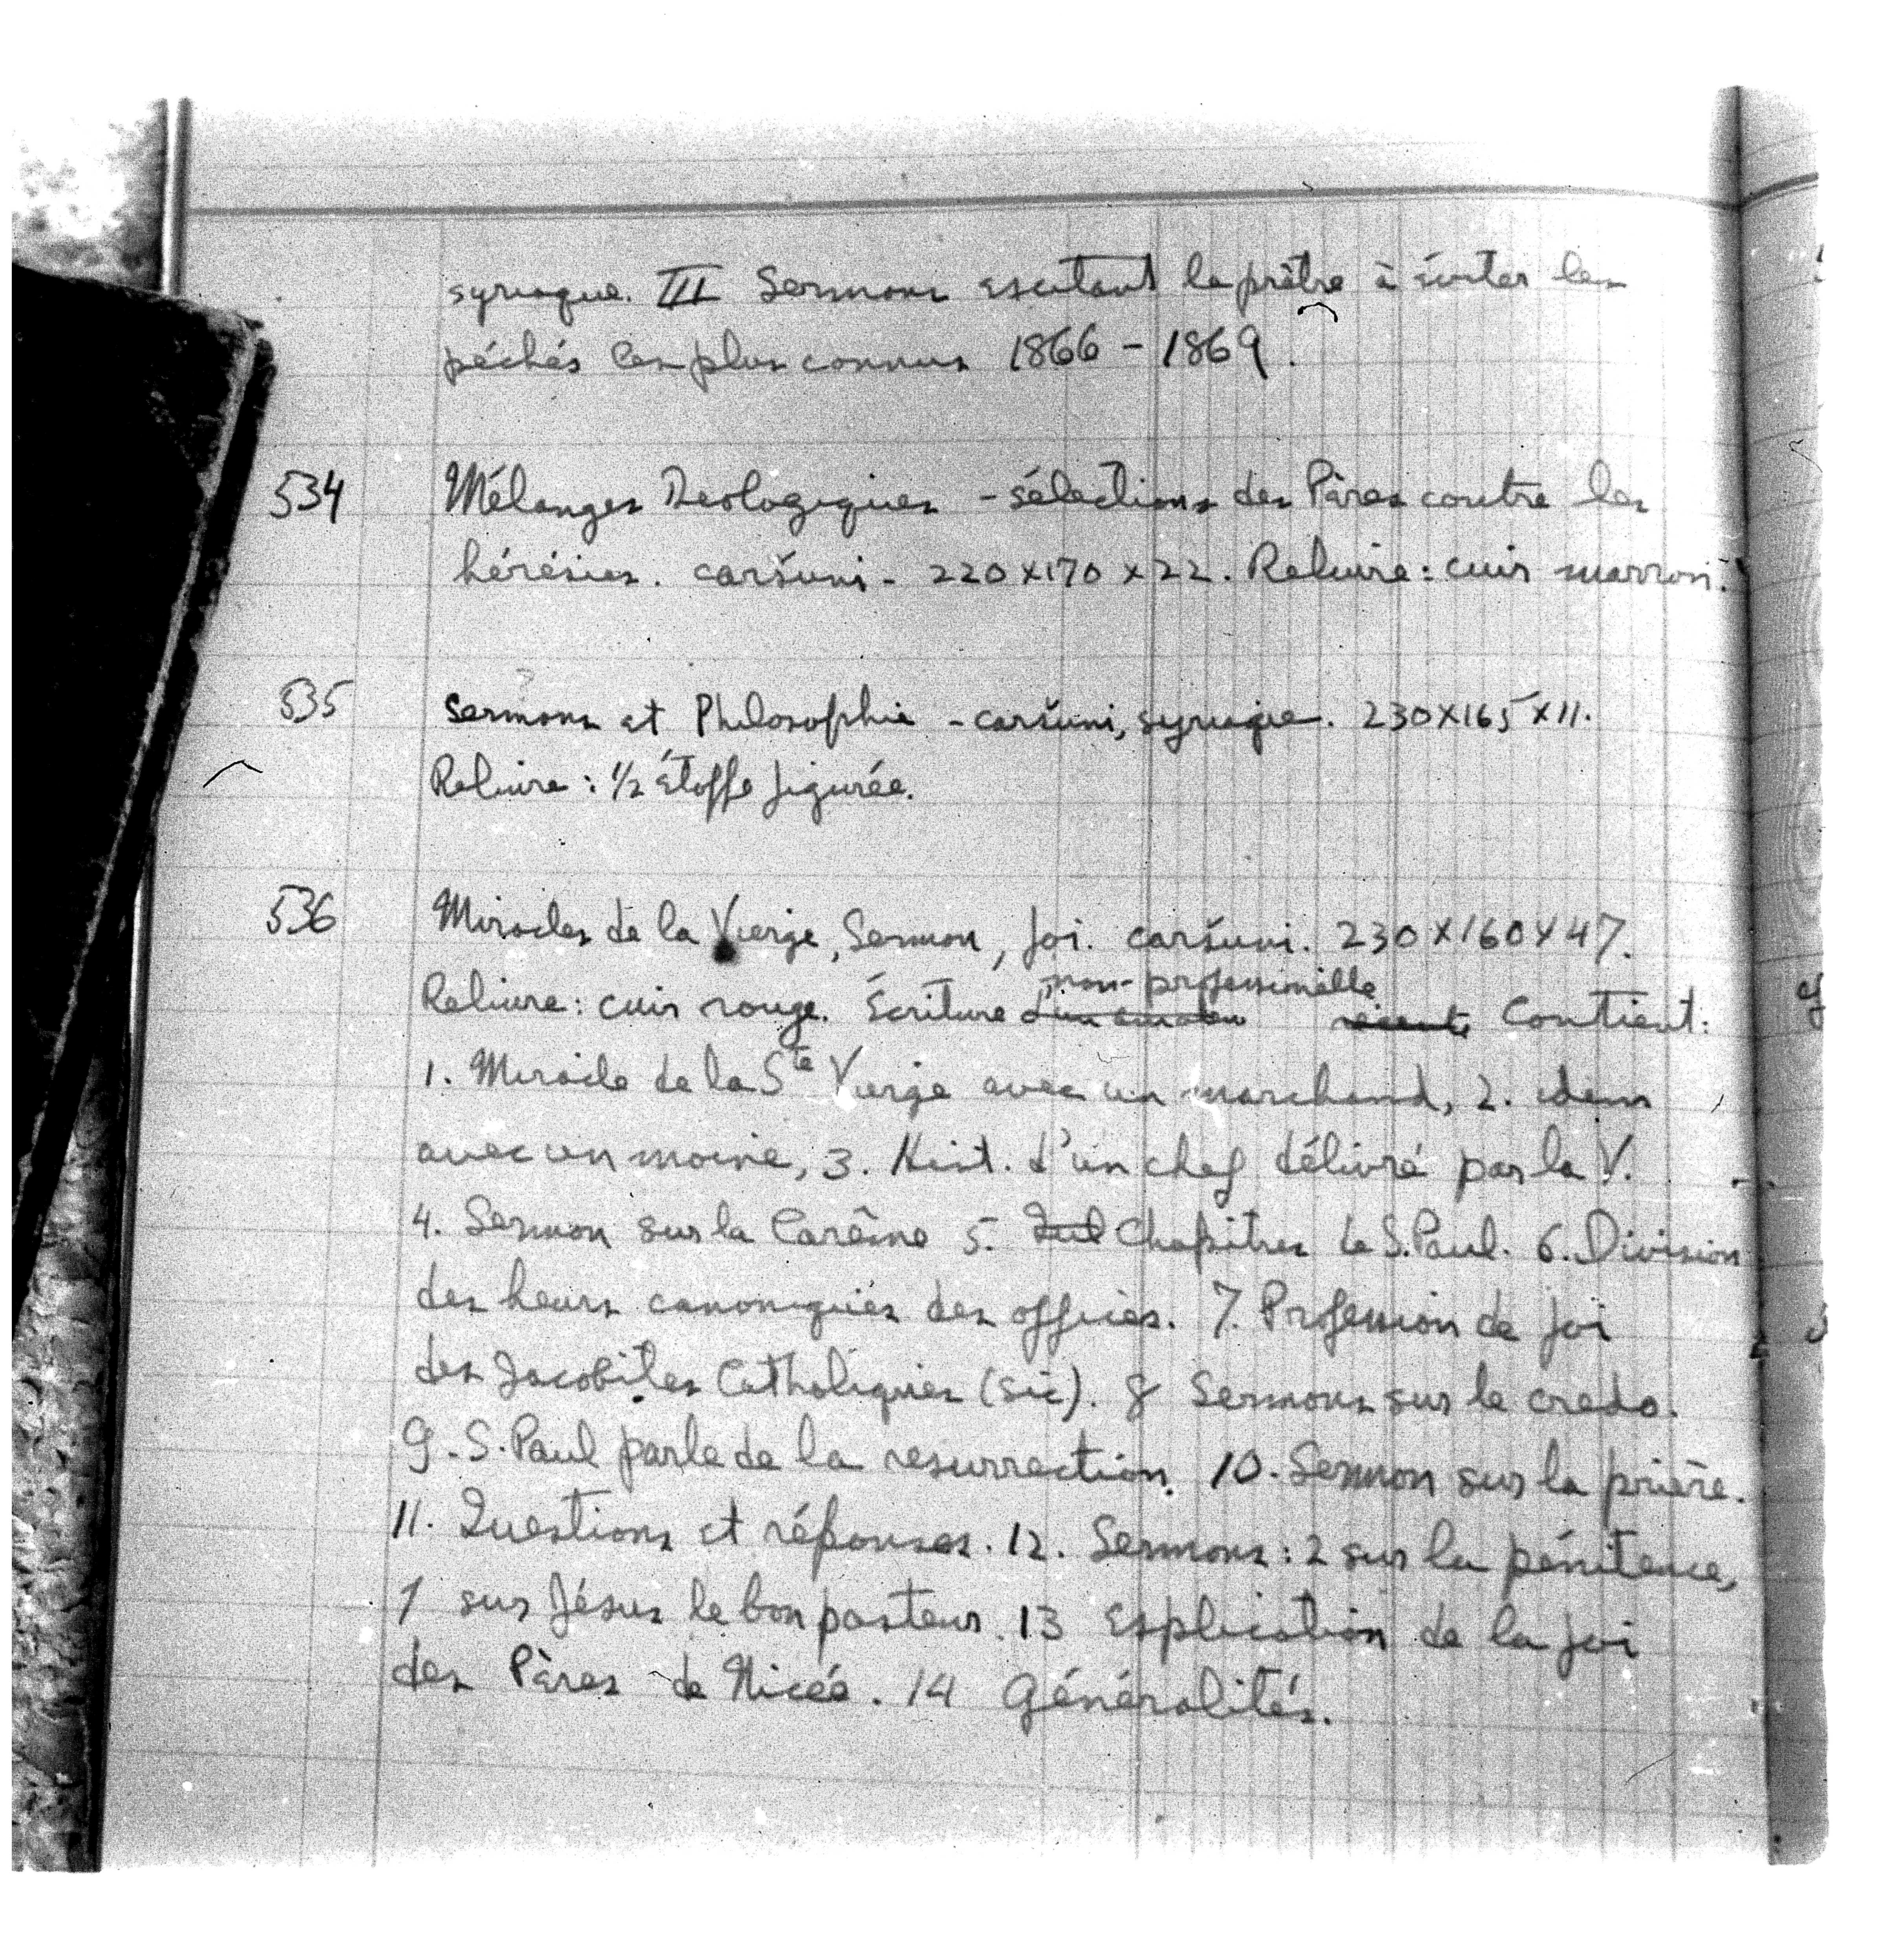 syriaque. III Sermons escitant le prêtre à éviter les
péchés les plus connus 1866 - 1869.
534 Mélanges Theologiques - sélections des Pères contre les
hérésies. caršuni - 220 x 170 x 22. Reliure: cuir marron.
535 Sermons et Philosophie - caršuni, syriaque. 230 x 165 x 11.
Reliure: 1/2 étoffe figurée.
536 Miracles de la Vierge, Sermon, foi. caršuni. 230 x 160 x 47.
Reliure: cuir rouge. Écriture non-professionelle Contient:
1. Miracle de la Ste Vierge avec un marchand, 2. idem
avec un moine, 3. Hist. d'un chef délivré par la V.
4. Sermon sur la Carême 5. Chapitres de S. Paul. 6. Division
des heurs canoniques des offices. 7. Profession de foi
des Jacobites Catholiques (sic). 8 Sermons sur le credo.
9. S. Paul parle de la resurrection. 10. Sermon sur la prière.
11. Questions et réponses. 12. Sermons: 2 sur la pénitence,
1 sur Jésus le bon pasteur. 13 Esplication de la foi
des Pères de Nicée. 14 Généralités.